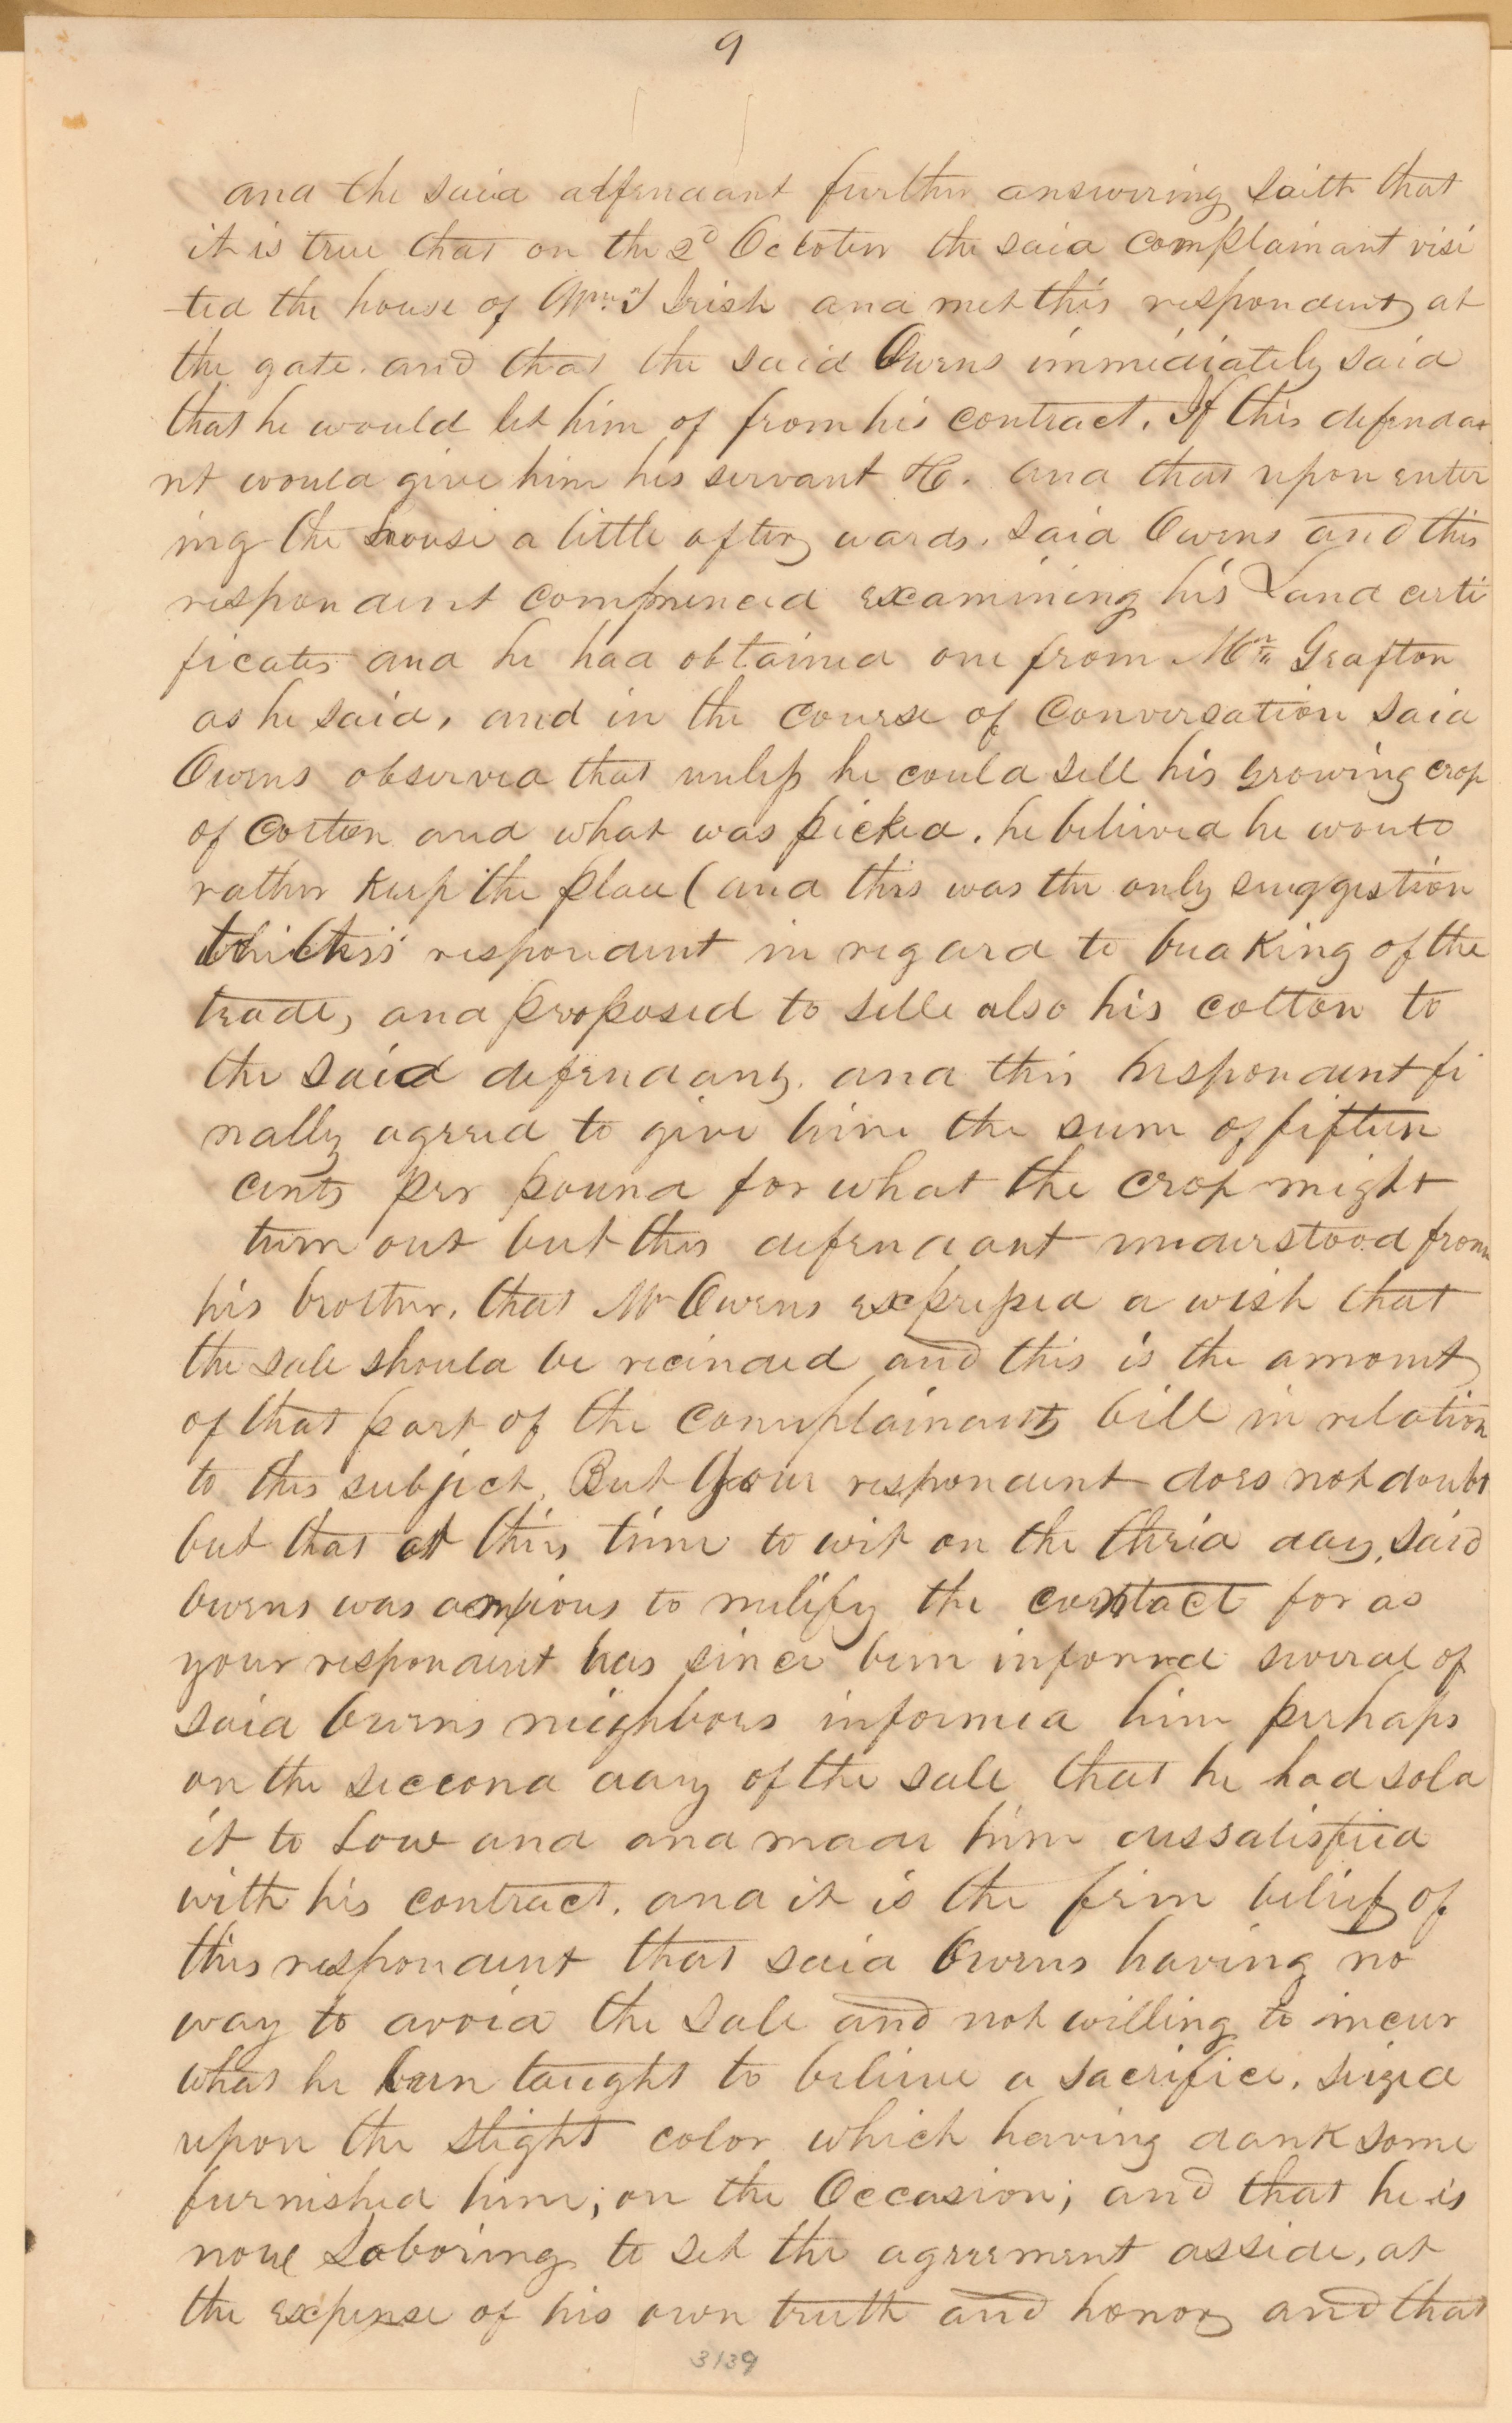 9
and the said defendant further answering saith that
it is true that on the 2d October the said complainant visi
ted the house of Irish and met this respondent at
the gate. and that the said Owens immediately said
that he would let him of from his contract. If this defenda
nt would give him his servant &C. and that upon enter
ing the house a little after wards. said Owens and this
respondent commenced examining his Land certi
ficates and he had obtained one from Mrs Grafton
as he said, and in the course of Conversation said
Owens observed that unless he could sell his growing crop
of Cotton and what was picked. he believed he would
rather keep the place (and this was the only suggestion
respondent in regard to breaking of the
trade, and proposed to selle also his cotton to
the said defendant. and this respondent fi
nally agreed to give him the sum of fifteen
cents per pound for what the crop might
turn out but this defendant understood from
his brother. that Mr Owens expressed a wish that
the sale should be recinded and this is the amount
of that part of the complainants bill in relation
to this subject. But Your respondent does not doubt
but that at this time to wit on the third day, said
Owens was anxious to nulify the contract for as
your respondent has since been informed several of
said Owens neighbors informed him perhaps
on the seccond day of the sale that he had sold
it to Low and and made him dissatisfied
with his contract. and it is the firm belief of
this respondent that said Owens having no
way to avoid the sale and not willing to incur
what he been taught to believe a sacrifice. seized
upon the slight color which having dank some
furnished him; on the Occasion; and that he is
now Laboring to set the agreement asside, at
the expense of his own truth and honor and that
3139